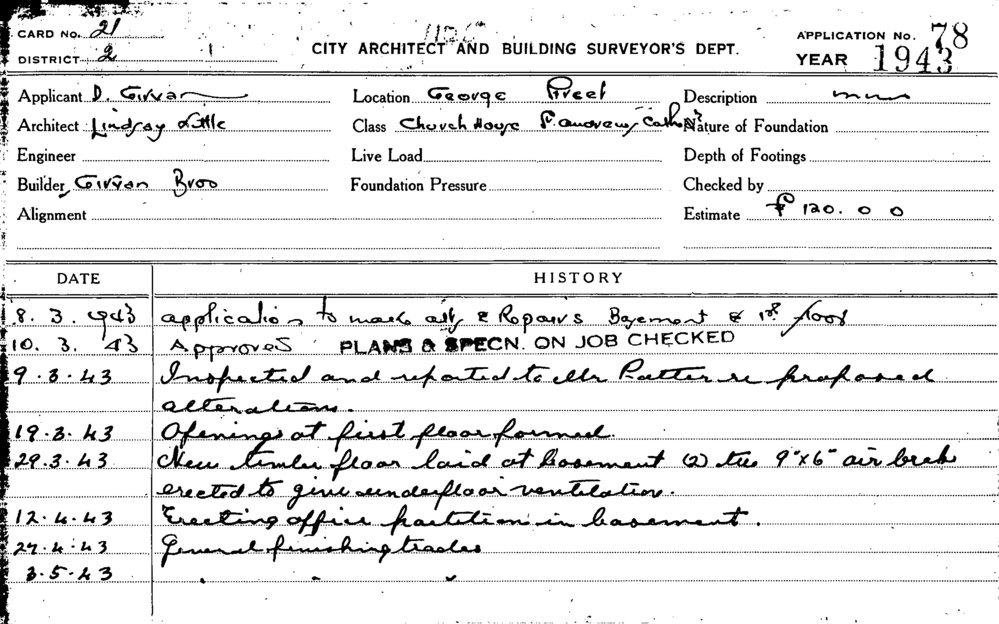 CARD No. 21
DISTRICT 2
CITY ARCHITECT AND BUILDING SURVEYOR'S DEPT.
APPLICATION No. 78
YEAR 1943
Applicant D. Girvan Location George Street Description
Architect Lindsay Little Class Church House St. Andrews Cath. Nature of Foundation
Engineer Live Load Depth of Footings
Builder, Girvan Bros Foundation Pressure Checked by
Alignment Estimate £ 120. 0 0
DATE HISTORY
8. 3. 1943 application to make alts & Repairs Basement & 1st floor
10. 3. 43 Approved PLANS & SPECN. ON JOB CHECKED
9.3.43 Inspected and reported to Mr Rutter re proposed
alterations.
19.3.43 Openings at first floor formed.
29.3.43 New timber floor laid at basement (2) two 9"x6" air bricks
erected to give underfloor ventilation.
12.4.43 Erecting office partition in basement.
27.4.43 General finishing trades
3.5.43 " " "